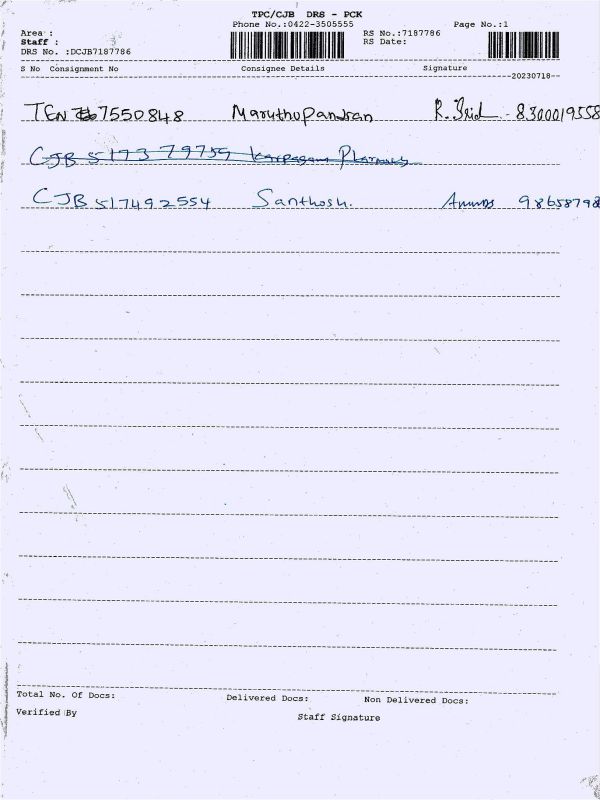 TPC/CJB DRS - PCK
Phone No.:0422-3505555 Page No.:1
Area :
Staff : RS No.:7187786
DRS No. :DCJB7187786 RS Date:
S No Consignment No Consignee Details Signature
--20230718--
TEN 7550848 Maruthupandian R. 8300019558
CJB 517379759 Karpagam
CJB 517492554 Santhosh. 98658798
Total No. Of Docs: Delivered Docs: Non Delivered Docs:
Verified By Staff Signature